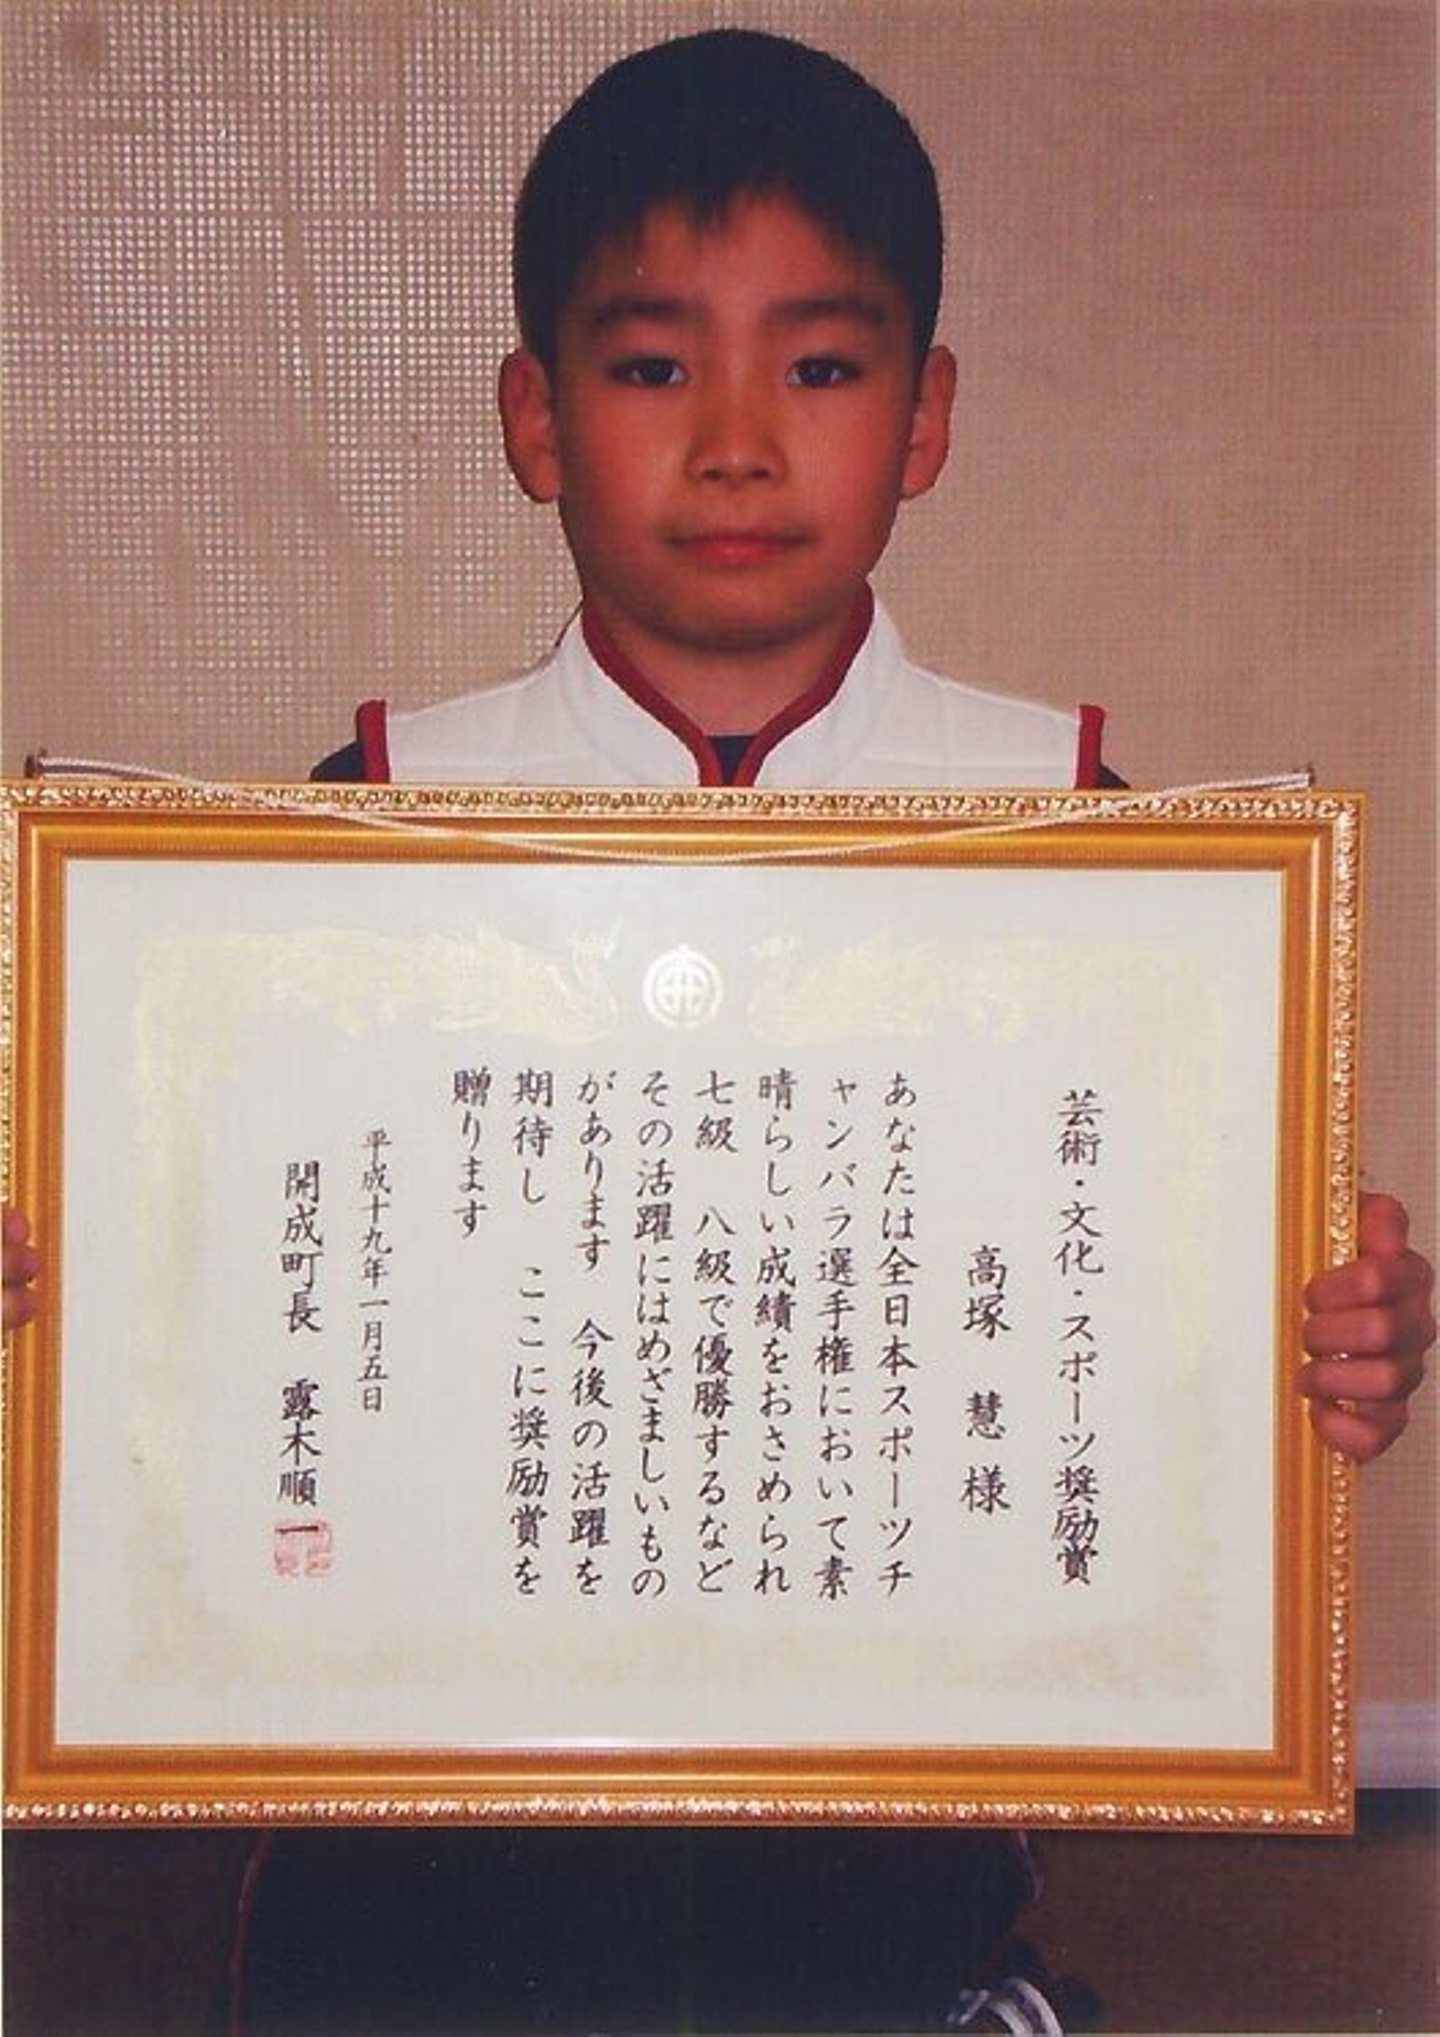 芸術・文化・スポーツ奨励賞
高塚 慧 様
あなたは全日本スポーツチ
ャンバラ選手権において素
晴らしい成績をおさめられ
七級 八級で優勝するなど
その活躍にはめざましいもの
があります 今後の活躍を
期待し ここに奨励賞を
贈ります
平成十九年一月五日
開成町長 露木順一